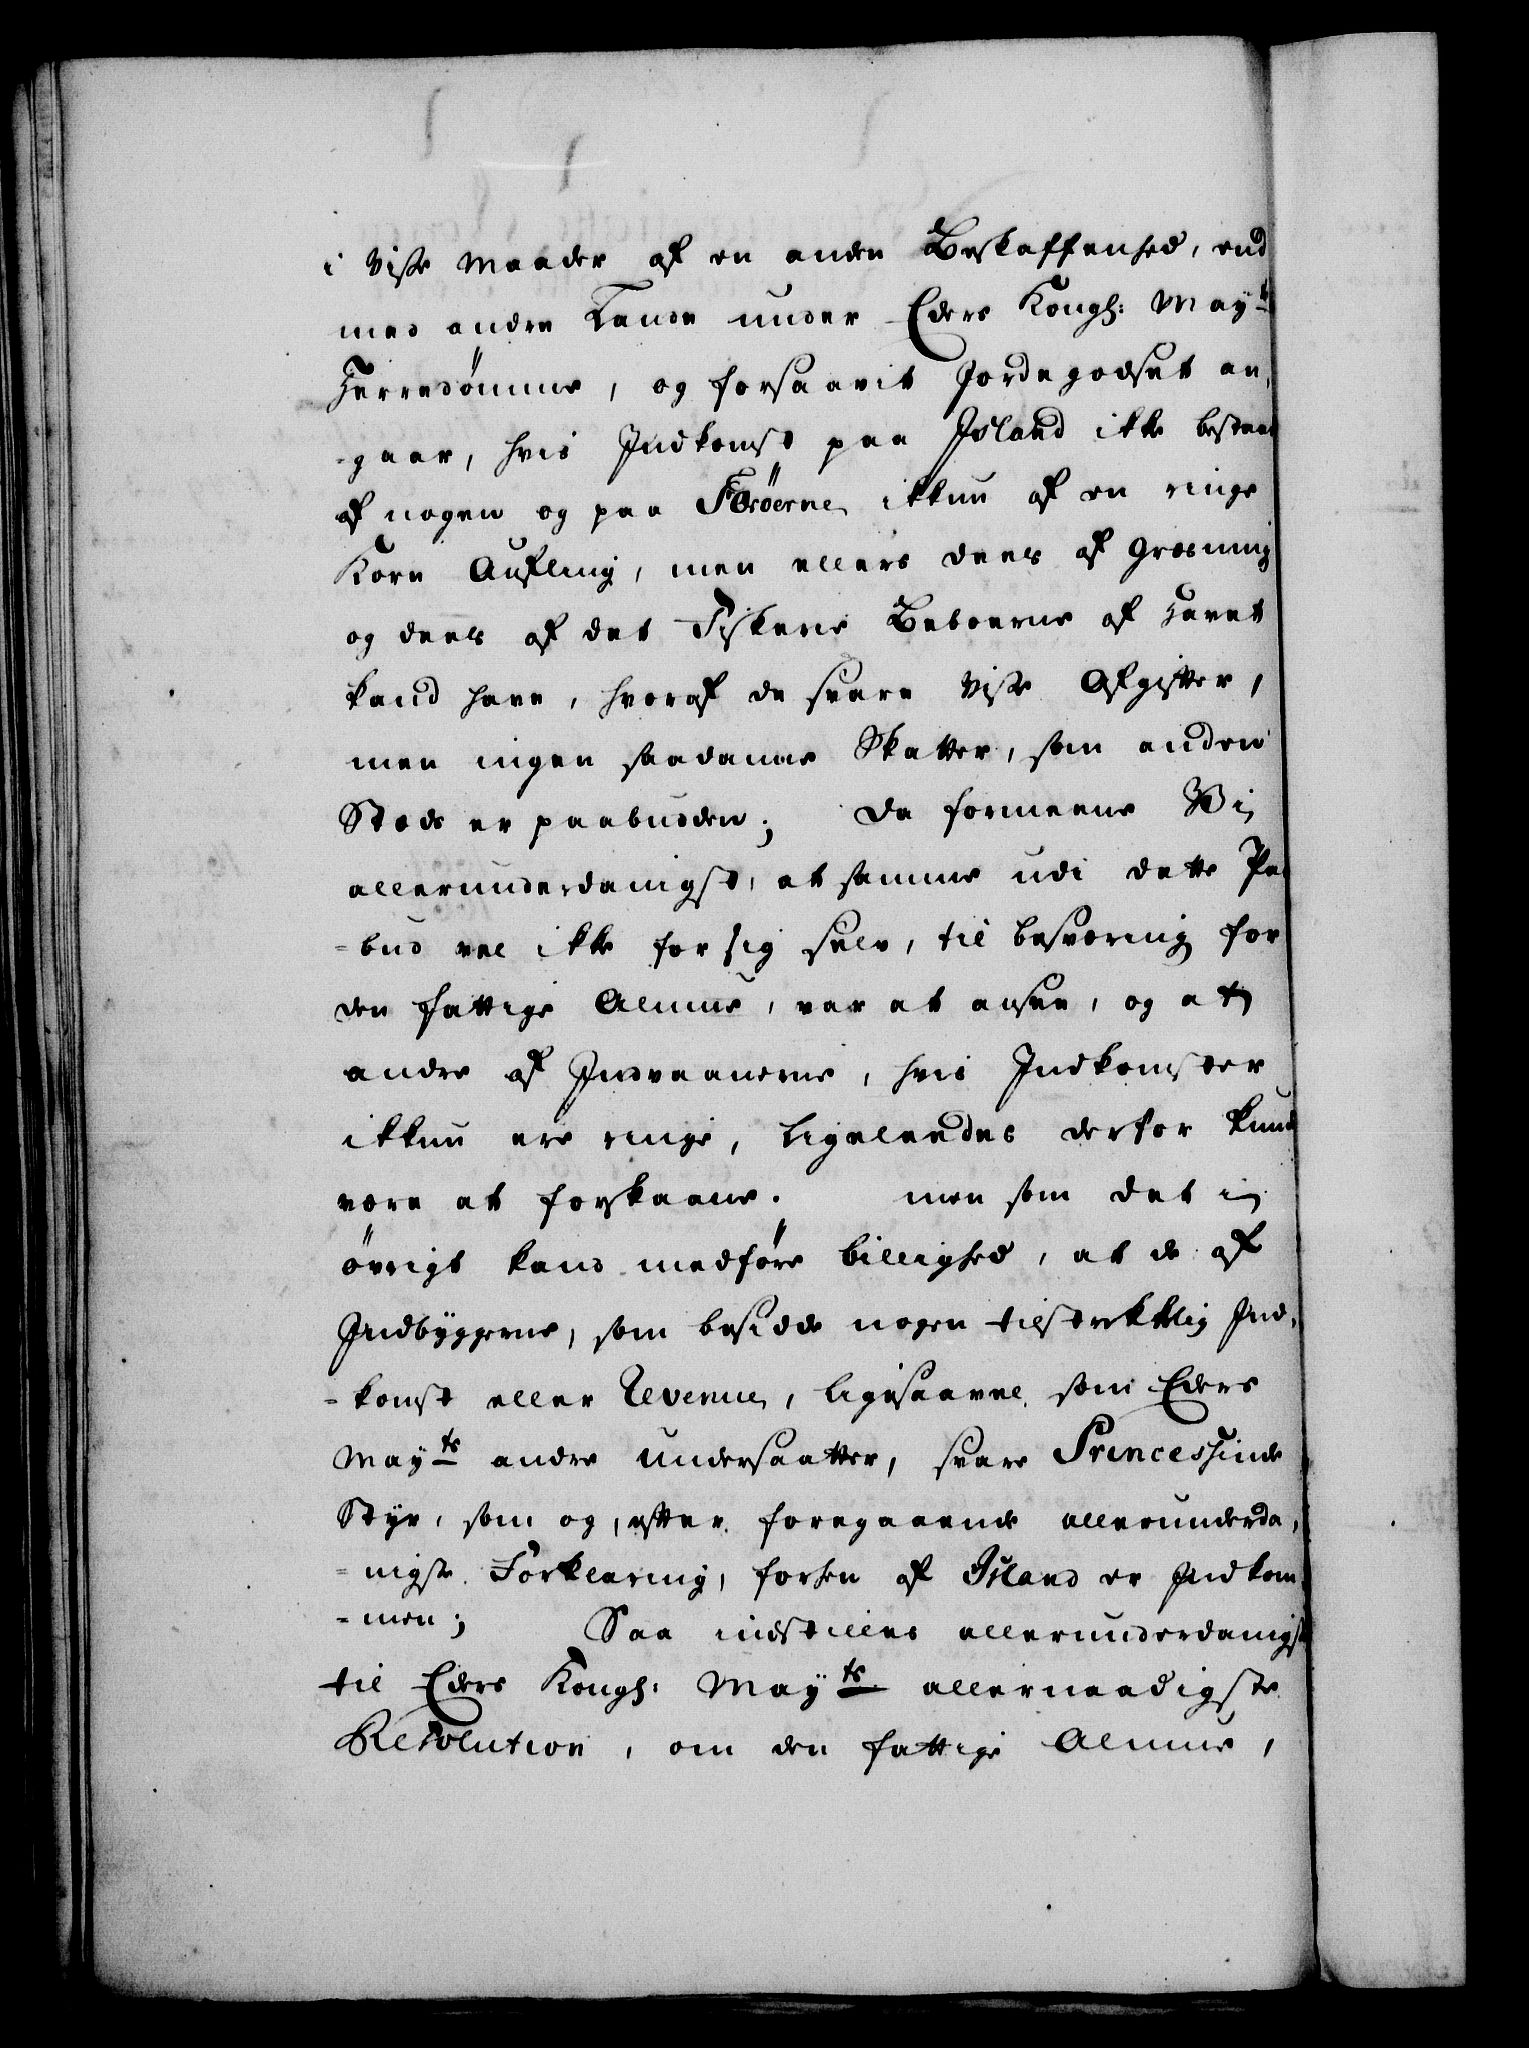 i visse maader af en anden Beskaffenhed, end
med andre Lande under Eders Kongl: May:ts
Herredömme, og forsaavit Jordegodset an-
-gaar, hvis Indkomst paa Island ikke bestaar
af nogen og paa Færöerne ikkun af en ringe
Korn Aufling, men ellers deels af Græsning
og deels af det Fiskerie Beboerne af Havet
kand have, hvoraf de svare visse Afgifter,
men ingen saadanne Skatter, som andre
Steds er paabudden; Da formeene Vi
allerunderdanigst, at samme udi dette Paa-
-bud vel ikke for sig selv, til besværing for
den fattige Almue, var at ansee, og at
andre af Indvaanerne, hvis Indkomster
ikkun ere ringe, ligeleedes derfor kunde
være at forskaane. men som det i
övrigt kand medföre billighed, at de af
Indbyggerne, som besidde nogen tilstrekkelig Ind-
-komst eller Revenue, ligesaavel som Eders
May:ts andre undersaatter, svare Princessinde
Styr, som og, efter foregaaende allerunderda-
-nigste Forklaring, forhen af Island er Indkom-
-men; Saa indstilles allerunderdanigst
til Eders Kongl: May:ts allernaadigste
Resolution, om den fattige Almue,